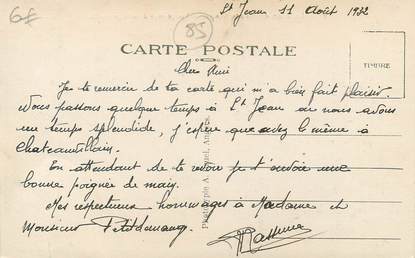 6€
St Jean 11 Août 1932
85
CARTE POSTALE
TIMBRE
Cher Ami
Je te remercie de ta carte qui m'a bien fait plaisir.
Nous passons quelque temps à St Jean ou nous avons
un temps splendide, j'espère que avez le même à
Chateauvillain.
En attendant de te revoir je t'envoie une
bonne poignée de main.
Mes respectueux hommages à Madame et
Monsieur Petitdemange.
Phototypie A.